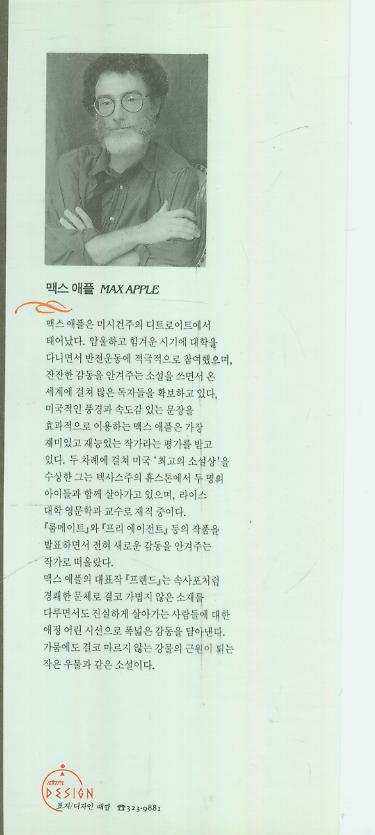 맥스 애플 MAX APPLE
맥스 애플은 미시건주의 디트로이트에서
태어났다. 암울하고 힘겨운 시기에 대학을
다니면서 반전운동에 적극적으로 참여했으며,
잔잔한 감동을 안겨주는 소설을 쓰면서 온
세계에 걸쳐 많은 독자들을 확보하고 있다.
미국적인 풍경과 속도감 있는 문장을
효과적으로 이용하는 맥스 애플은 가장
재미있고 재능있는 작가라는 평가를 받고
있다. 두 차례에 걸쳐 미국 '최고의 소설상'을
수상한 그는 텍사스주의 휴스톤에서 두 명의
아이들과 함께 살아가고 있으며, 라이스
대학 영문학과 교수로 재직 중이다.
『룸메이트』와 『프리 에이전트』 등의 작품을
발표하면서 전혀 새로운 감동을 안겨주는
작가로 떠올랐다.
맥스 애플의 대표작 『프렌드』는 속사포처럼
경쾌한 문체로 결코 가볍지 않은 소재를
다루면서도 진실하게 살아가는 사람들에 대한
애정 어린 시선으로 폭넓은 감동을 담아낸다.
가뭄에도 결코 마르지 않는 강물의 근원이 되는
작은 우물과 같은 소설이다.
DESIGN
표지/디자인 ☎323-9881